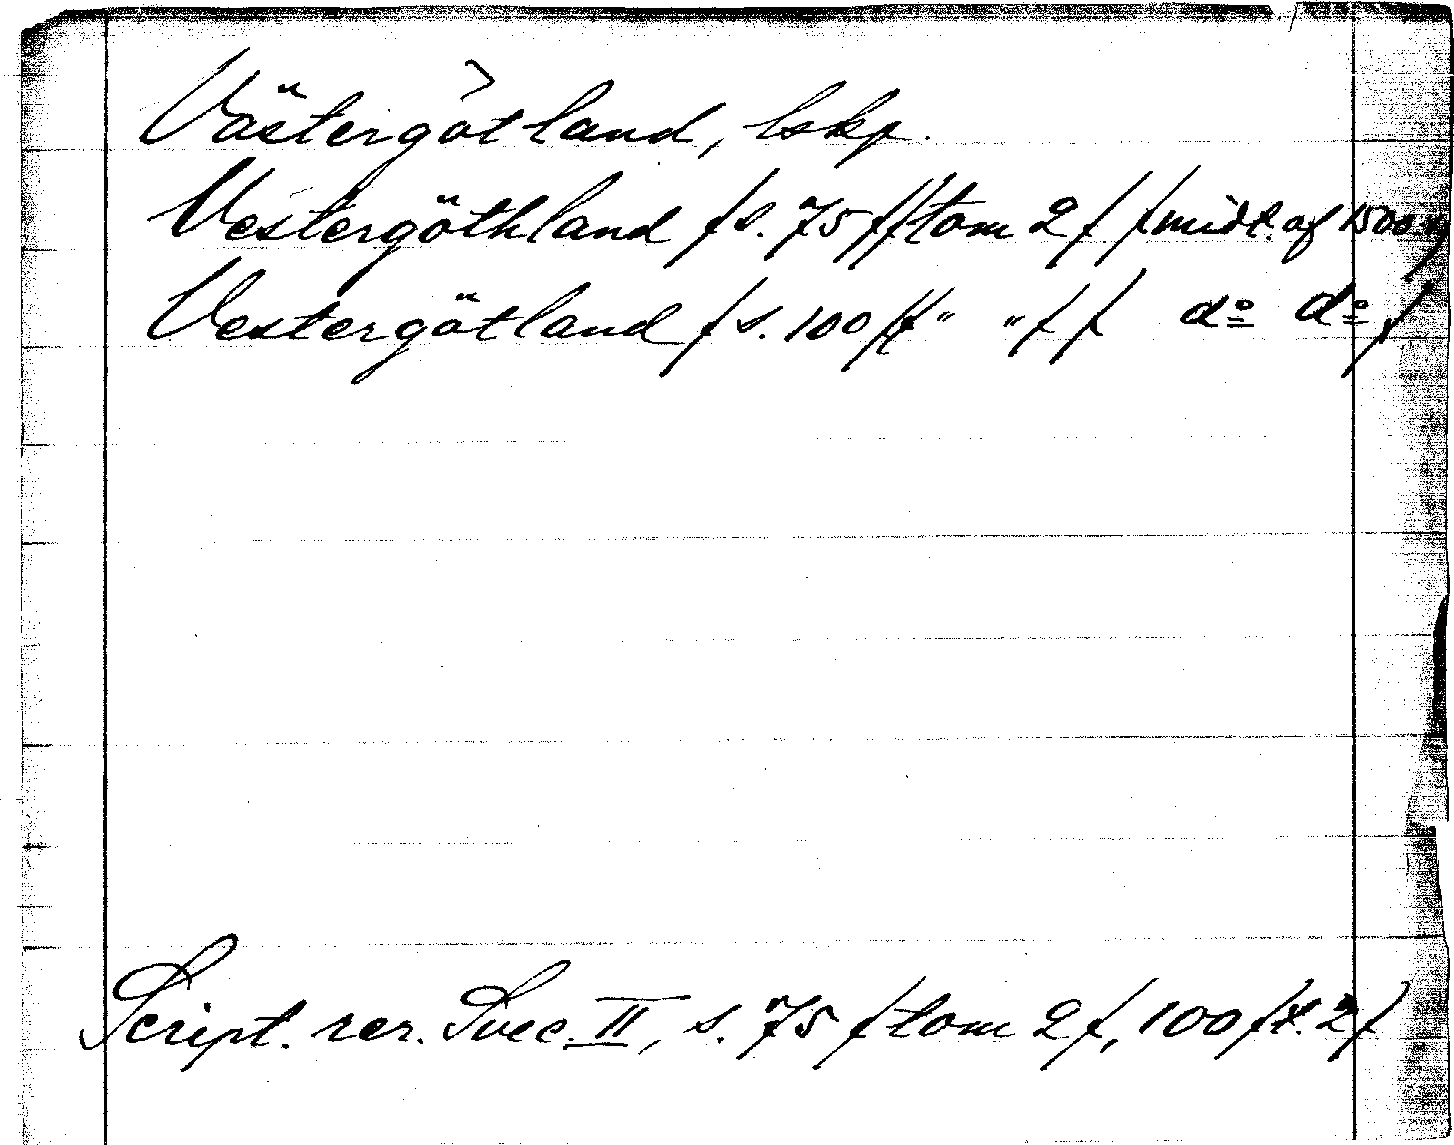 Västergötland, lskp.
Vestergöthland /s. 75//tom 2/ /midt. af 1500
Vestergötland /s. 100//" "// do do/
Script. rer. Svec. II, s. 75 /tom 2/, 100 /t. 2/